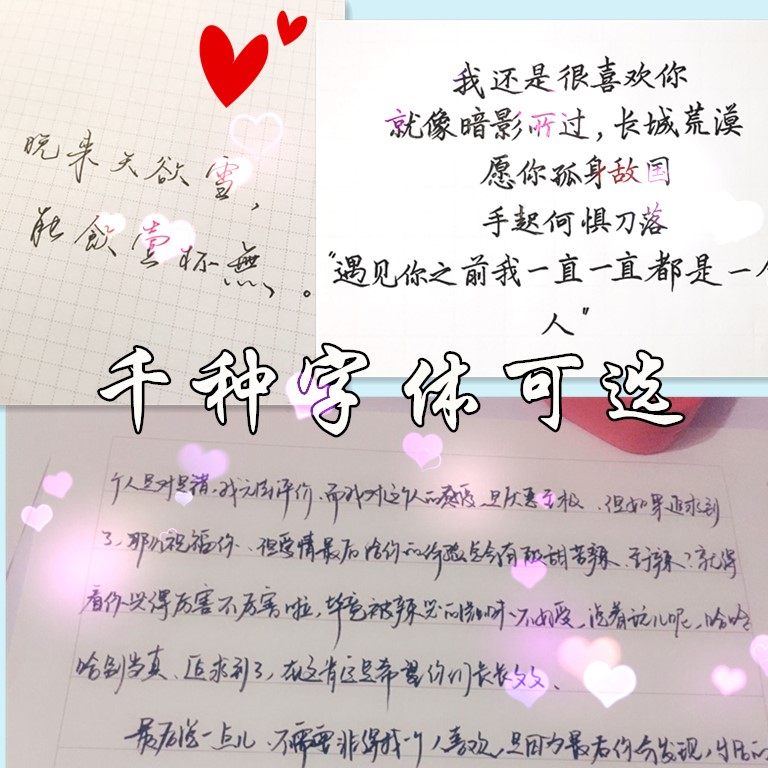 晚来天欲雪，
能飲壹杯無。
我还是很喜欢你
就像暗影所过，长城荒漠
愿你孤身敌国
手起何惧刀落
"遇见你之前我一直一直都是一个
人"
千种字体可选
个人是对是错，我无法评价，而我对这个人的感受，是厌恶至极，但如果追求到
了，那么祝福你，但爱情最后给你的体验总会有酸甜苦辣，至于辣？就得
看你觉得厉害不厉害啦，毕竟被辣哭的滋味不好受，说着玩儿呢，哈哈
哈别当真，追求到了，在这肯定是希望你们长长久久、
最后送一点儿，不需要非得找一个人喜欢，是因为最后你会发现，生活